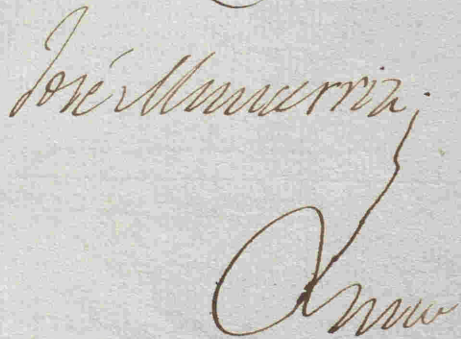 José Munarriz